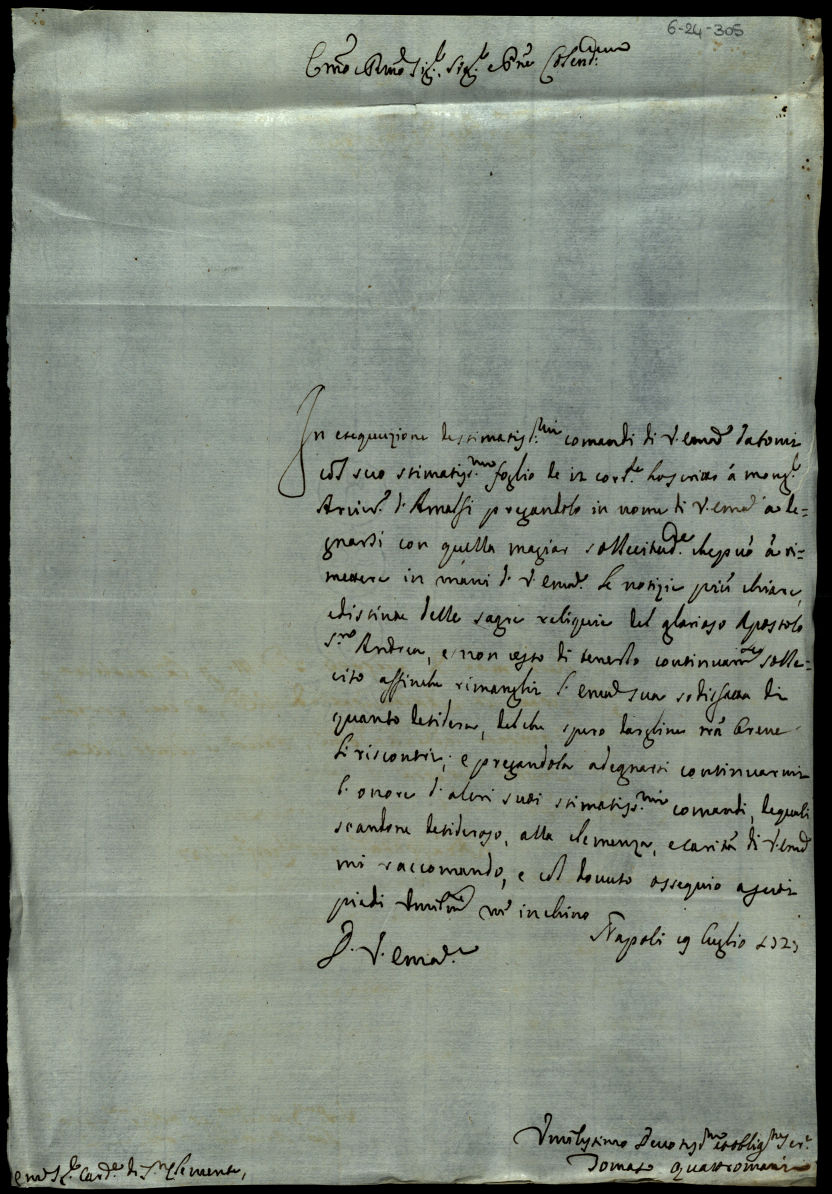 6-24-305
Em̃o e Rm̃o Sig.re Sig.re e Pñe Colend.mo
In esequuzione de stimatiss.mi comandi di V. Em.za datomi
col suo stimatiss.mo foglio de 12 corr.te ho scritto á mong.r
Arciv.o d'Amalfi pregandolo in nome di V. Em.za a de=
gnarsi con quella magior sollecitud.e che può á ri=
mettere in mani di V. Em.za le notizie più chiare,
e distinte delle sagre reliquie del glorioso Apostolo
S.to Andrea, e non cesso di tenerlo continuam.te solle=
cito affinche rimanghi l'Em.za sua sodisfatta di
quanto desidera, del che spero dargline frá breve
li riscontri; e pregandola a degnarsi continuarmi
l'onore d'altri suoi stimatiss.mi comandi, de quali
standone desideroso, alla clemenza, e carità di V. Em.za
mi raccomando, e col dovuto ossequio a suoi
piedi Umilm.te m'inchino
Napoli 19 luglio
D. V. Em.za
Umilissimo Devotiss.mo et oblig.mo ser.e
Tomaso Quattromani
Em.o S.r Card.le di S.n Clemente,